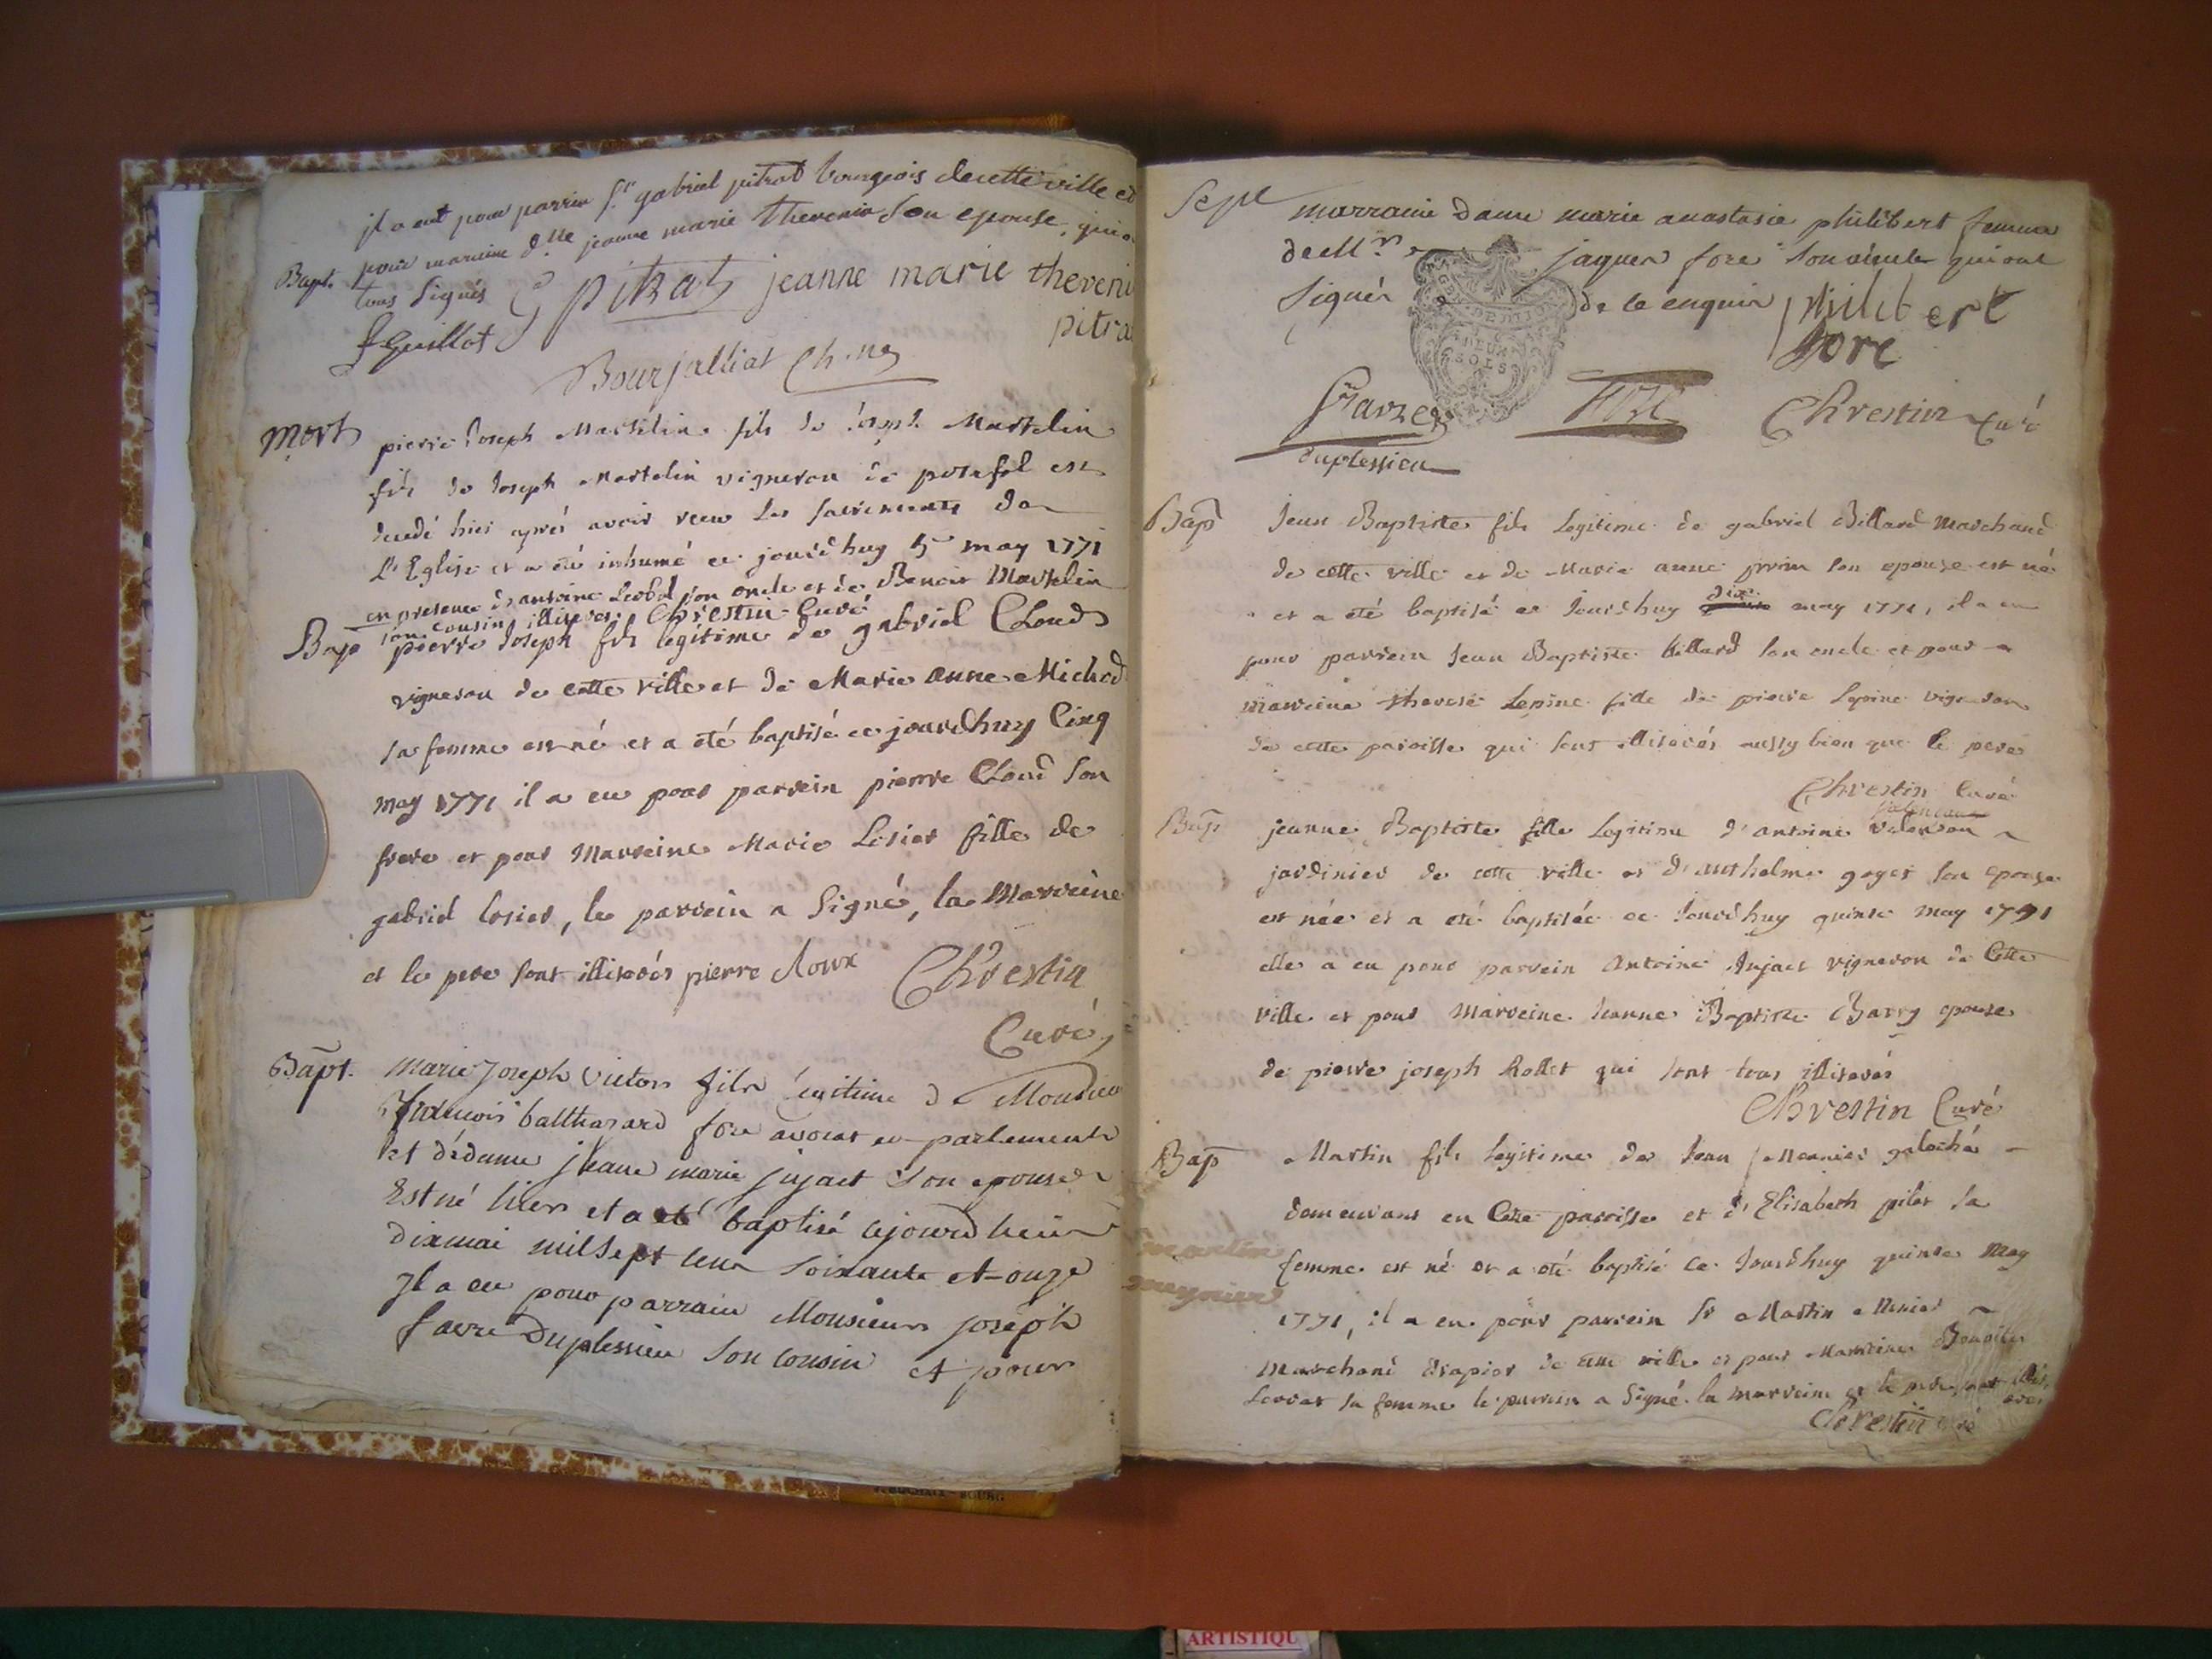 il a eut pour parrin Sr gabriel pitrat bourgeois de cette ville et
pour maraine dlle jeanne marie thevenin son epouse, qui
Bapt. tous signés G pitrat jeanne marie theveni
f Guillot pitra
Bourjalliat Ch.ne
Mort pierre Joseph Martelin fils de Joseph Martelin
fils de Joseph Martelin vigneron de est
decedé hier aprés avoir receu les sacrements de
L'Eglise et a été inhumé ce jourdhuy 5 may 1771
en presence d'antoine son oncle et de Benoit Martelin
son cousin illiterés Chrestin Curé
Bap pierre Joseph fils legitime de gabriel Cloud
vigneron de cette ville et de Marie anne Michod
sa femme est né et a été baptisé ce jourdhuy Cinq
may 1771 il a eu pour parrein pierre Cloud son
frere et pour Marreine Marie Losier fille de
gabriel losier, le parrein a Signé, la Marreine
et le pere sont illiterés pierre cloux Chrestin
Curé,
Bapt. Marie Joseph Victor fils legitime de Monsieur
François balthazard fore avocat en parlement
et dedame jeane marie jujaet Son epouse
Est né hier et a eté baptisé cejourdheui
dix mai mil Sept cent soixante et onze
Il a eu pour parrain Monsieur joseph
favre Duplessieu son cousin et pour
Sept marraine dame marie anastasie philibert femme
de Mr jaques fore son oncle qui ont
Signés de ce enquis philibert
GEN DE DIJON
DEUX
SOLS
fore
Duplessieu
Chrestin Curé
Bap Jean Baptiste fils Legitime de gabriel Billard Marchand
de cette ville et de Marie anne son epouse est né
et a été baptisé ce Jourdhuy dix may 1771, il a eu
pour parrein Jean Baptiste billard son oncle et pour
marreine therese Lepine fille de pierre Lepine vigneron
de cette paroisse qui sont illiterés aussy bien que le pere
Chrestin Curé
Bap jeanne Baptiste fille Legitime d'antoine
jardinier de cette ville et d'anthelme goyet son epouse
est née et a été baptisée ce Jourdhuy quinse may 1771
elle a eu pour parrein Antoine Jujaet vigneron de Cette
ville et pour Marreine Jeanne Baptiste Barry epouse
de pierre joseph Rollet qui sont tous illiterés
Chrestin Curé
Bap Martin fils legitime de Jean Meunier galoché
demeurant en Cette paroisse et d'Elisabeth pilot sa
martin femme est né et a été baptisé ce Jourdhuy quinse May
meynier
1771, il a eu pour parrein Sr Martin
Marchand drapier de cette ville et pour Marreine
sa femme le parrein a Signé la marreine et le pere sont
Chrestin Curé
ARTISTIQU